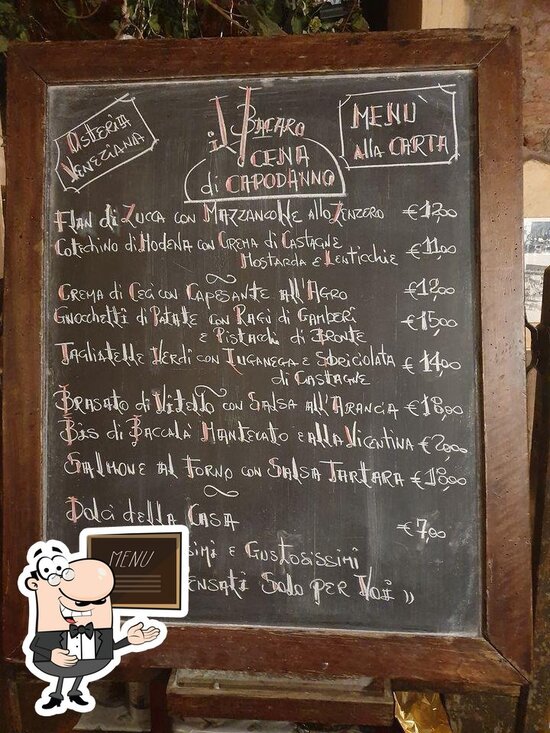 Osteria
Veneziana
il Bacaro
CENA
di CAPODANNO
MENÙ
alla CARTA
Flan di Zucca con Mazzancolle allo Zenzero €12,00
Cotechino di Modena con Crema di Castagne
Mostarda e Lenticchie €11,00
Crema di Ceci con Capesante all'Agro €12,00
Gnocchetti di Patate con Ragù di Gamberi €15,00
e Pistacchi di Bronte
Tagliatelle Verdi con Luganega e Sbriciolata €14,00
di Castagne
Brasato di Vitello con Salsa all'Arancia €18,00
Bis di Baccalà Mantecato e alla Vicentina
Salmone al Forno con Salsa Tartara €18,00
Dolci della Casa €7,00
e Gustosissimi
Solo per Voi "
MENU